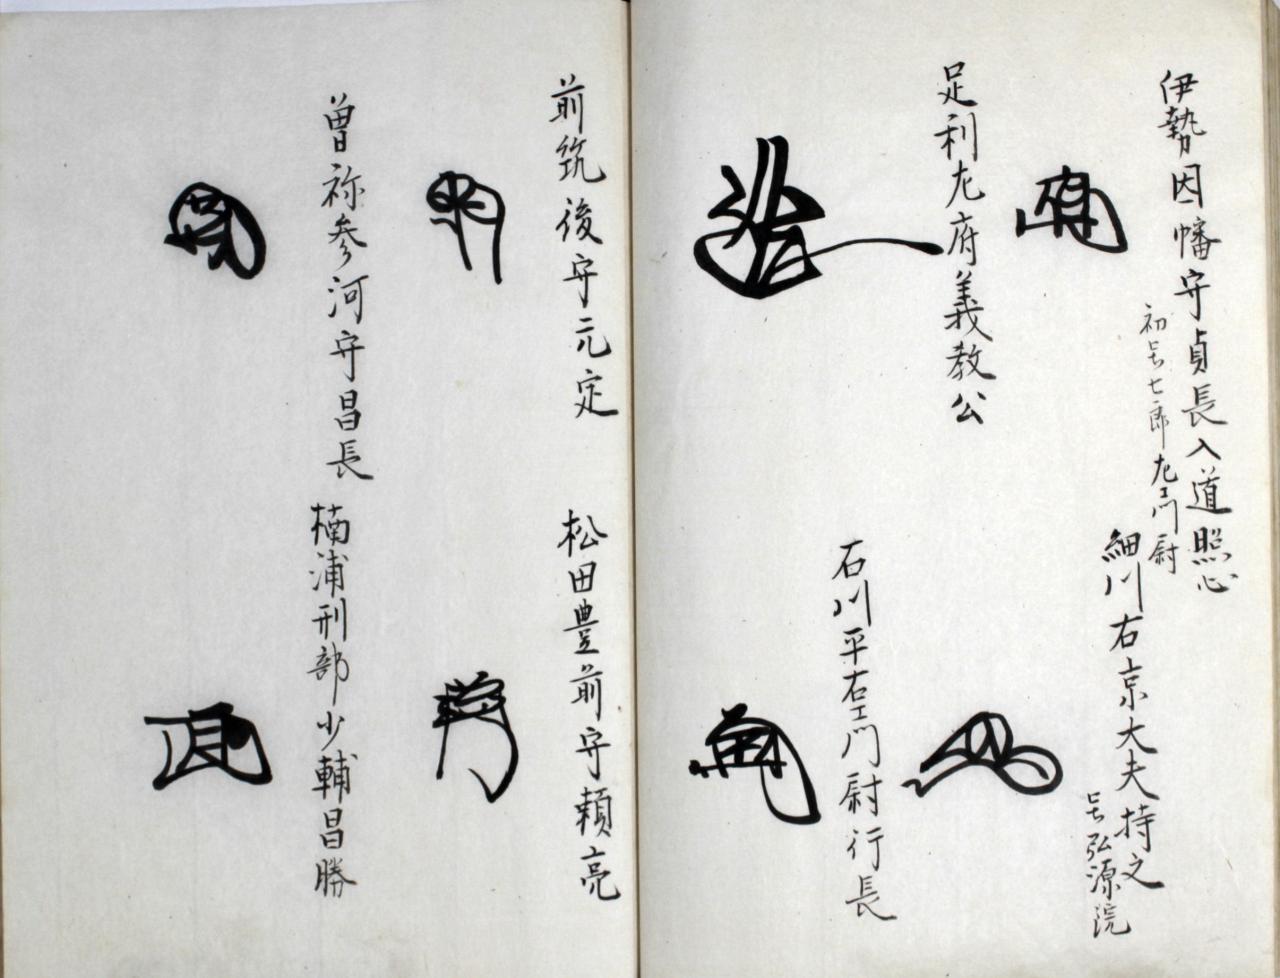 伊勢因幡守貞長入道照心
初号七郎左エ門尉
細川右京大夫持之
号弘源院
足利左府義教公
石川平右エ門尉行長
前筑後守元定
松田豊前守頼亮
曽祢参河守昌長
楠浦刑部少輔昌勝